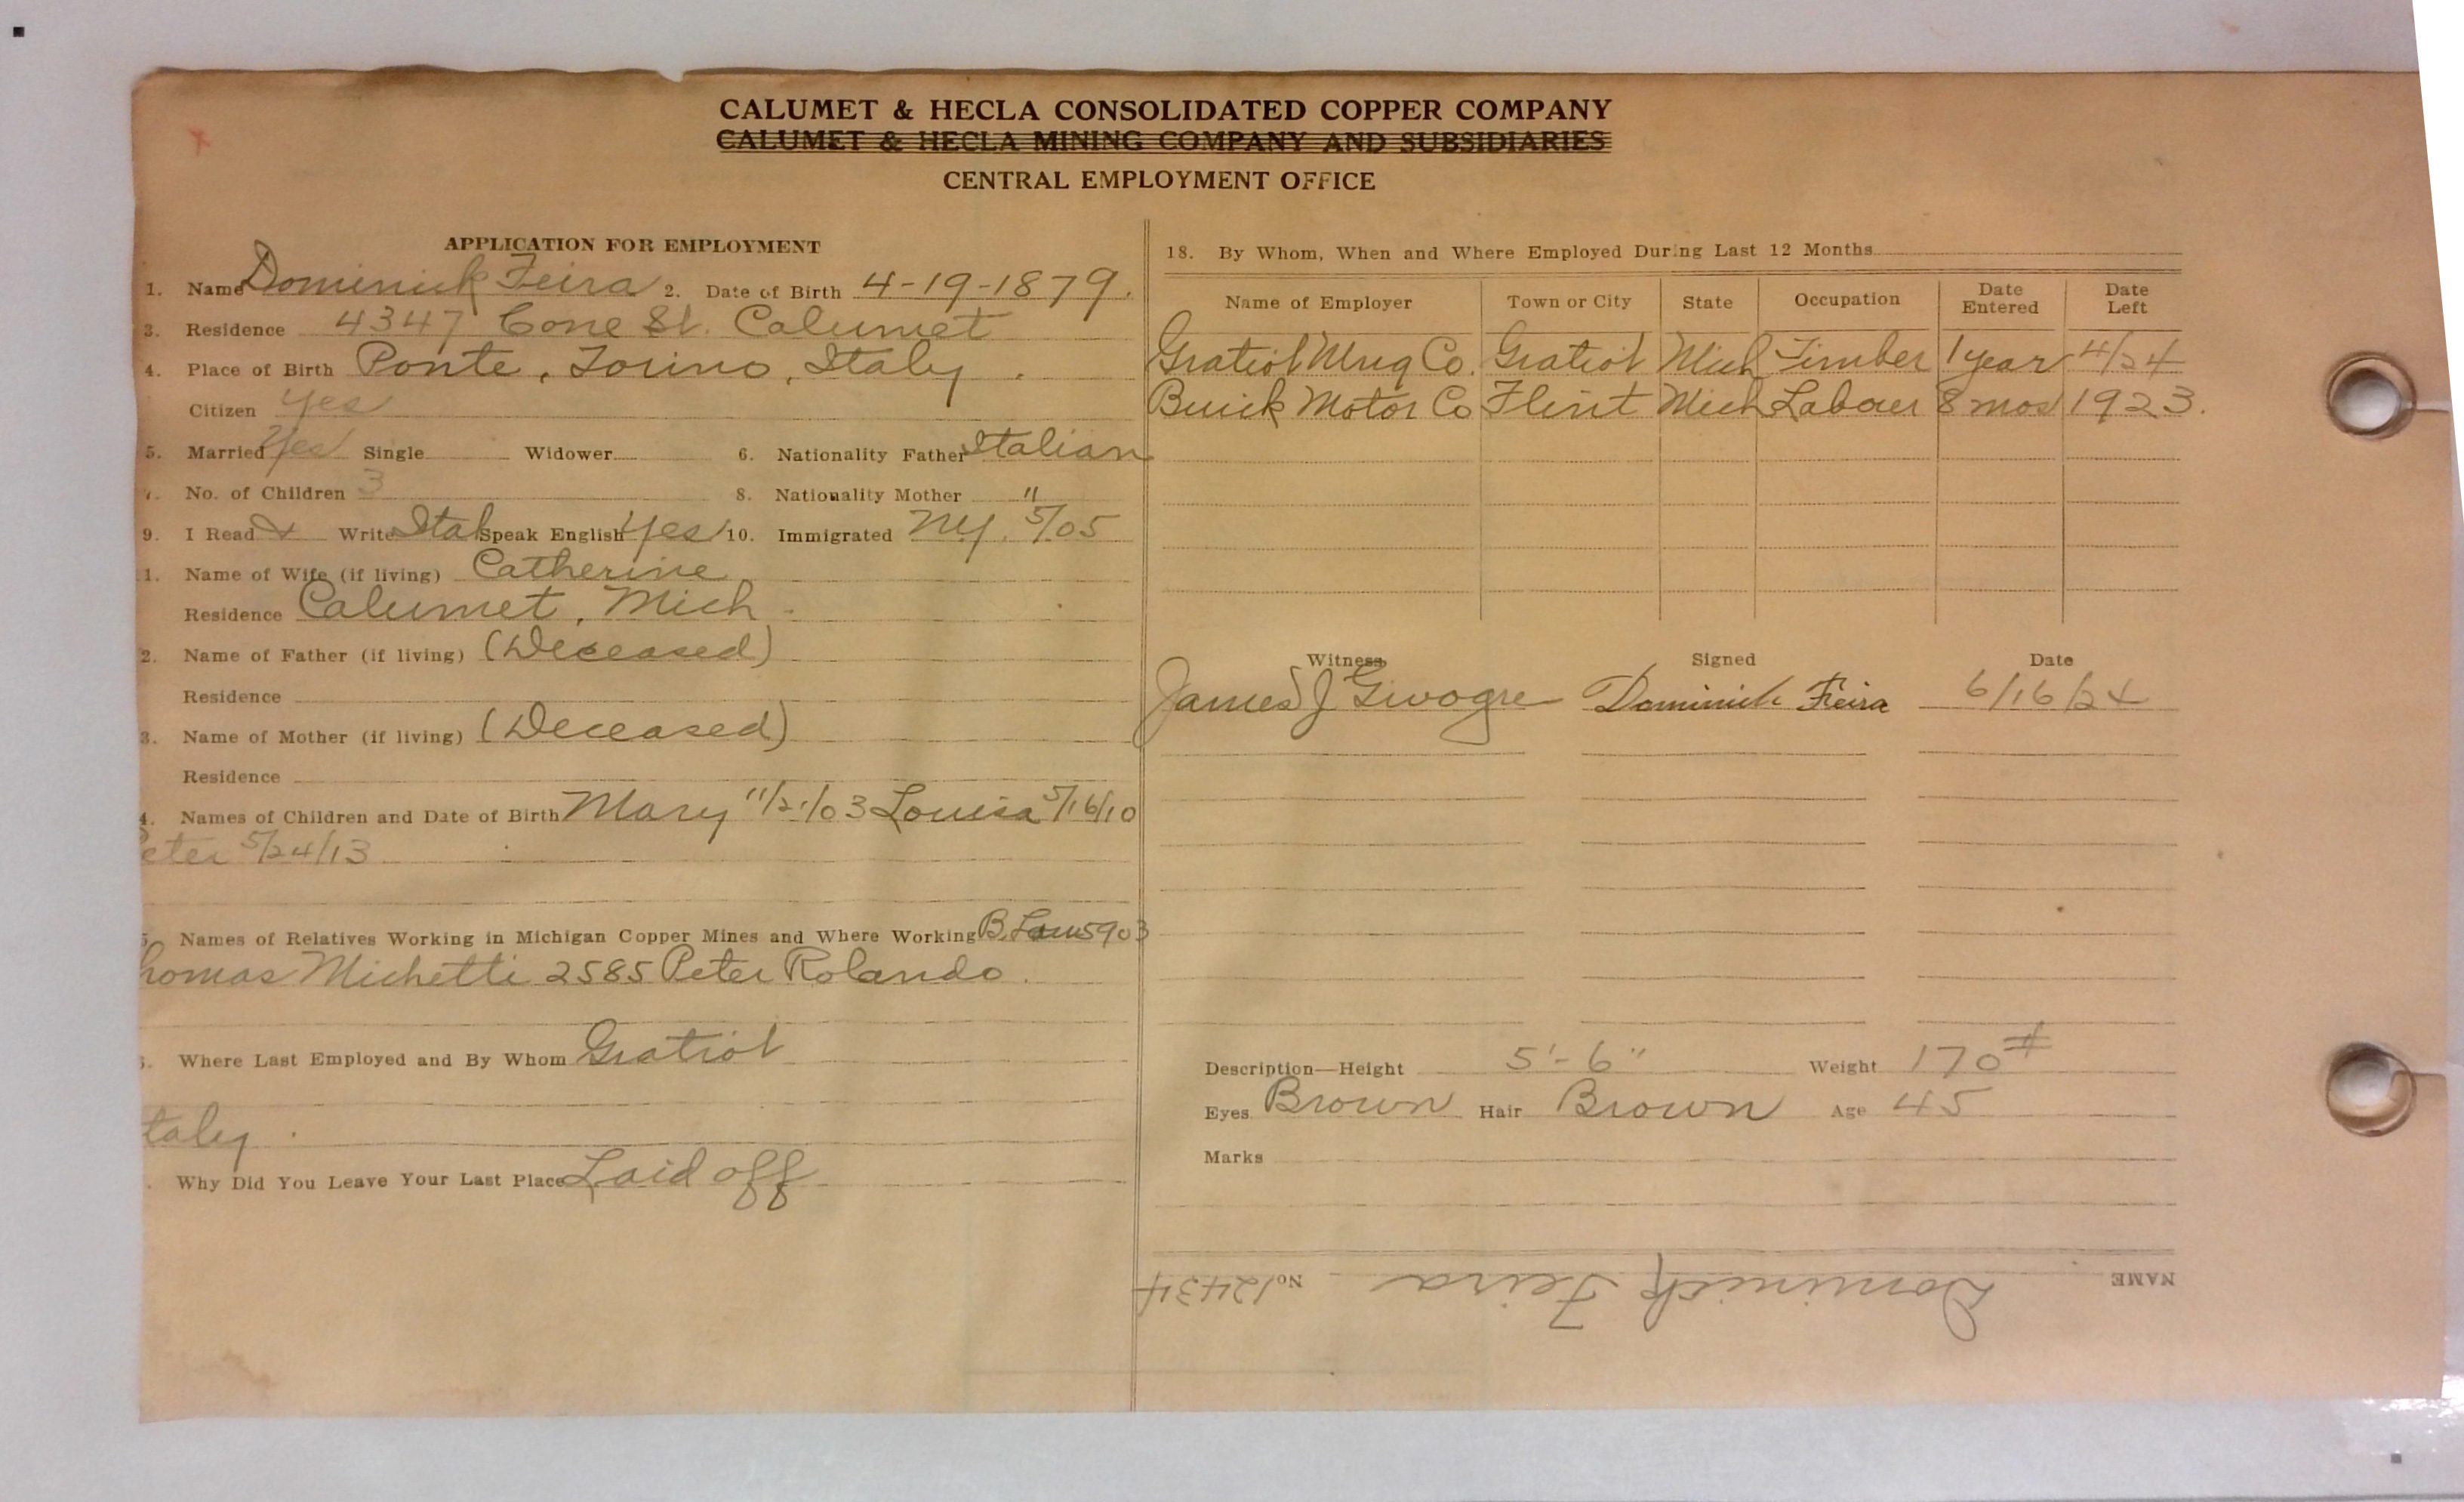 CALUMET & HECLA CONSOLIDATED COPPER COMPANY
CALUMET & HECLA MINING COMPANY AND SUBSIDIARIES
CENTRAL EMPLOYMENT OFFICE
APPLICATION FOR EMPLOYMENT
1. Name Dominick Feira 2. Date of Birth 4-19-1879.
3. Residence 4347 Cone St. Calumet
4. Place of Birth Ponte, Torino, Italy.
Citizen yes
5. Married Yes Single Widower 6. Nationality Father Italian
7. No. of Children 3 8. Nationality Mother "
9. I Read & Write Ital Speak English Yes 10. Immigrated N.Y. 5/05
1. Name of Wife (if living) Catherine
Residence Calumet, Mich.
2. Name of Father (if living) (Deceased)
Residence
3. Name of Mother (if living) (Deceased)
Residence
4. Names of Children and Date of Birth Mary 11/21/03 Louisa 5/16/10
Peter 5/24/13
5. Names of Relatives Working in Michigan Copper Mines and Where Working B. Law 5903
homas Michetti 2585 Peter Rolando.
Where Last Employed and By Whom Gratiot
taly.
Why Did You Leave Your Last Place Laid off
18. By Whom, When and Where Employed During Last 12 Months
Name of Employer Town or City State Occupation Date Entered Date Left
Gratiot Mng Co. Gratiot Mich Timber 1 year 4/24
Buick Motor Co Flint Mich Laborer 8 mos 1923.
Witness Signed Date
James J Dominick Feira 6/16/24
Description—Height 5'-6" Weight 170#
Eyes Brown Hair Brown Age 45
Marks
NAME Dominick Feira No. 12434